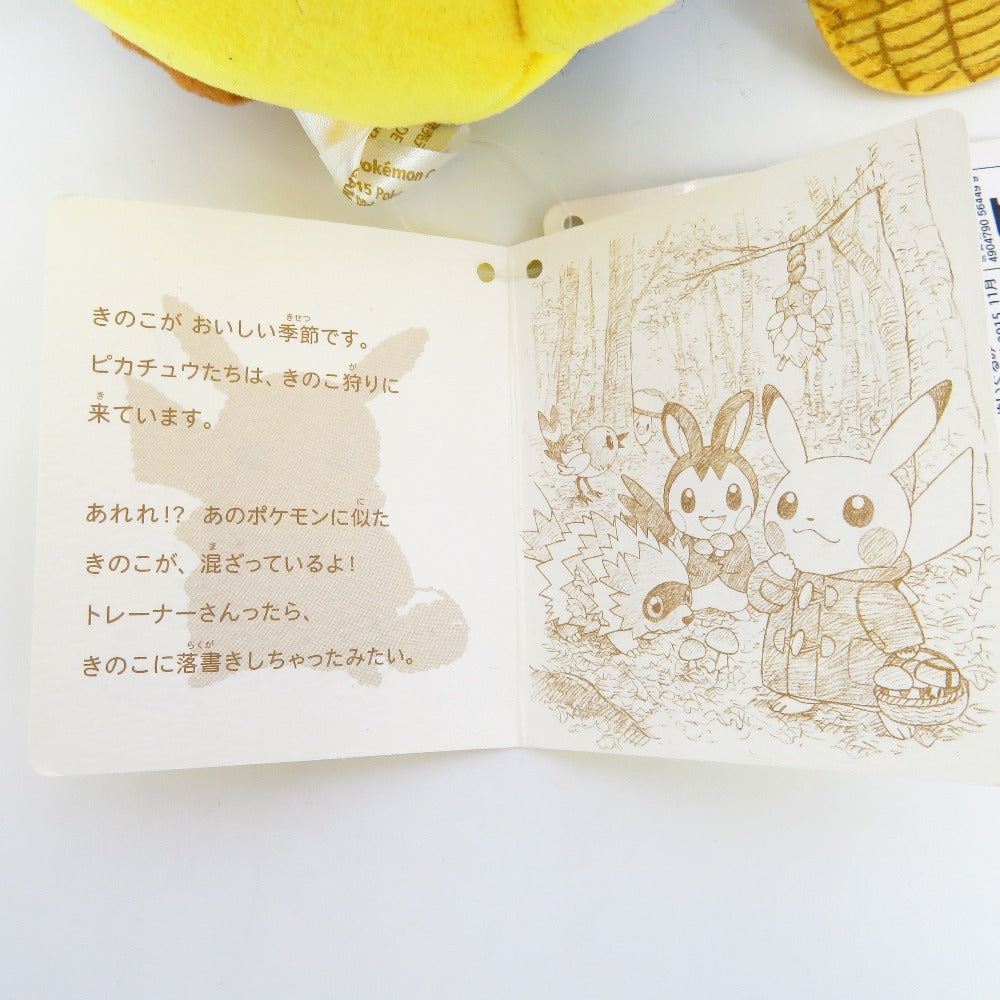 okémon
15 Pok
きのこが おいしい季節です。
きせつ
ピカチュウたちは、きのこ狩りに
か
来ています。
き
あれれ!? あのポケモンに似た
に
きのこが、混ざっているよ!
ま
トレーナーさんったら、
きのこに落書きしちゃったみたい。
らくが
4904790 56449 9
2015 11月